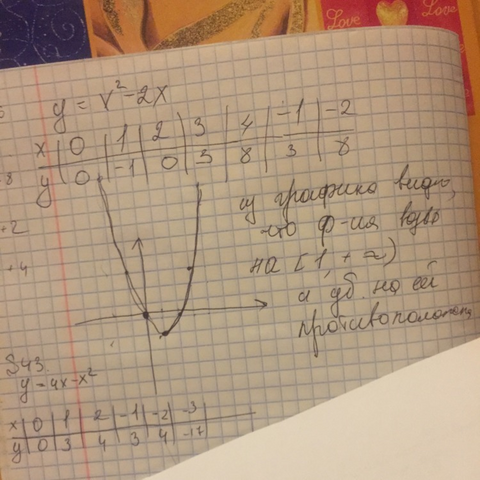 Love
Love
y = x²-2x
x | 0 | 1 | 2 | 3 | 4 | -1 | -2
y | 0 | -1 | 0 | 3 | 8 | 3 | 8
из графика видно,
что ф-ия возр
на [1, +∞)
а уб. на ей
противоположн
8
+2
+4
S43.
y = 4x-x²
x | 0 | 1 | 2 | -1 | -2 | -3
y | 0 | 3 | 4 | 3 | 4 | -17